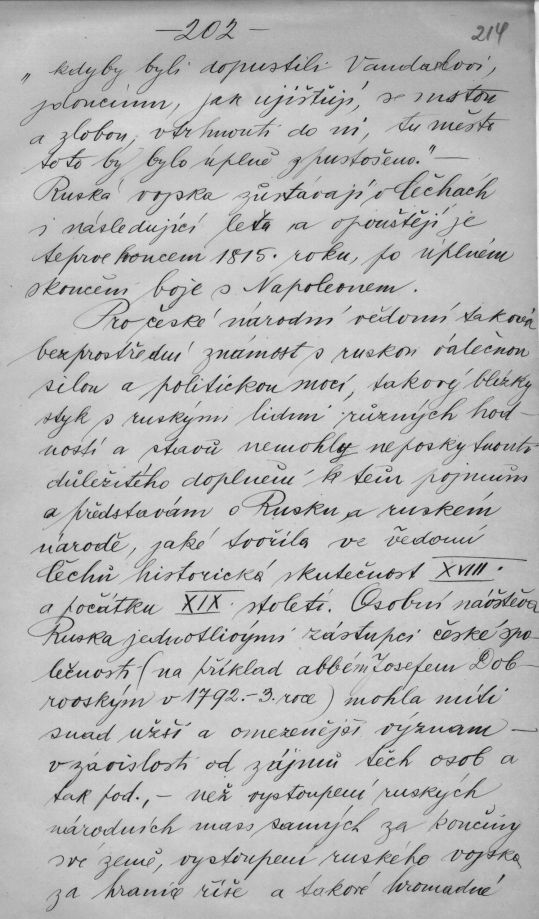 — 202 —
214
„kdyby byli dopustili Vandalovi,
, jak ujišťují, se mstou
a zlobou, vtrhnouti do ní, tu město
toto by bylo úplně zpustošeno." —
Ruská vojska zůstávají v Čechách
i následující léta a opouštějí je
teprve koncem 1815. roku, po úplném
skončení boje s Napoleonem.
Pro české národní vědomí taková
bezprostřední známost s ruskou válečnou
silou a politickou mocí, takový blízky
styk s ruskými lidmi různých hod-
ností a stavů nemohly neposkytnouti
důležitého doplnění k těm pojmům
a představám o Rusku a ruském
národě, jaké tvořila ve vědomí
Čechů historická skutečnost XVIII.
a počátku XIX. století. Osobní návštěva
Ruska jednotlivými zástupci české spo-
lečnosti (na příklad abbém Josefem Dob-
rovským v 1792.-3. roce) mohla míti
snad užší a omezenější význam —
v závislosti od zájmů těch osob a
tak pod., — než vystoupení ruských
národních mass samých za končiny
své země, vystoupení ruského vojska
za hranice říše a takové hromadné